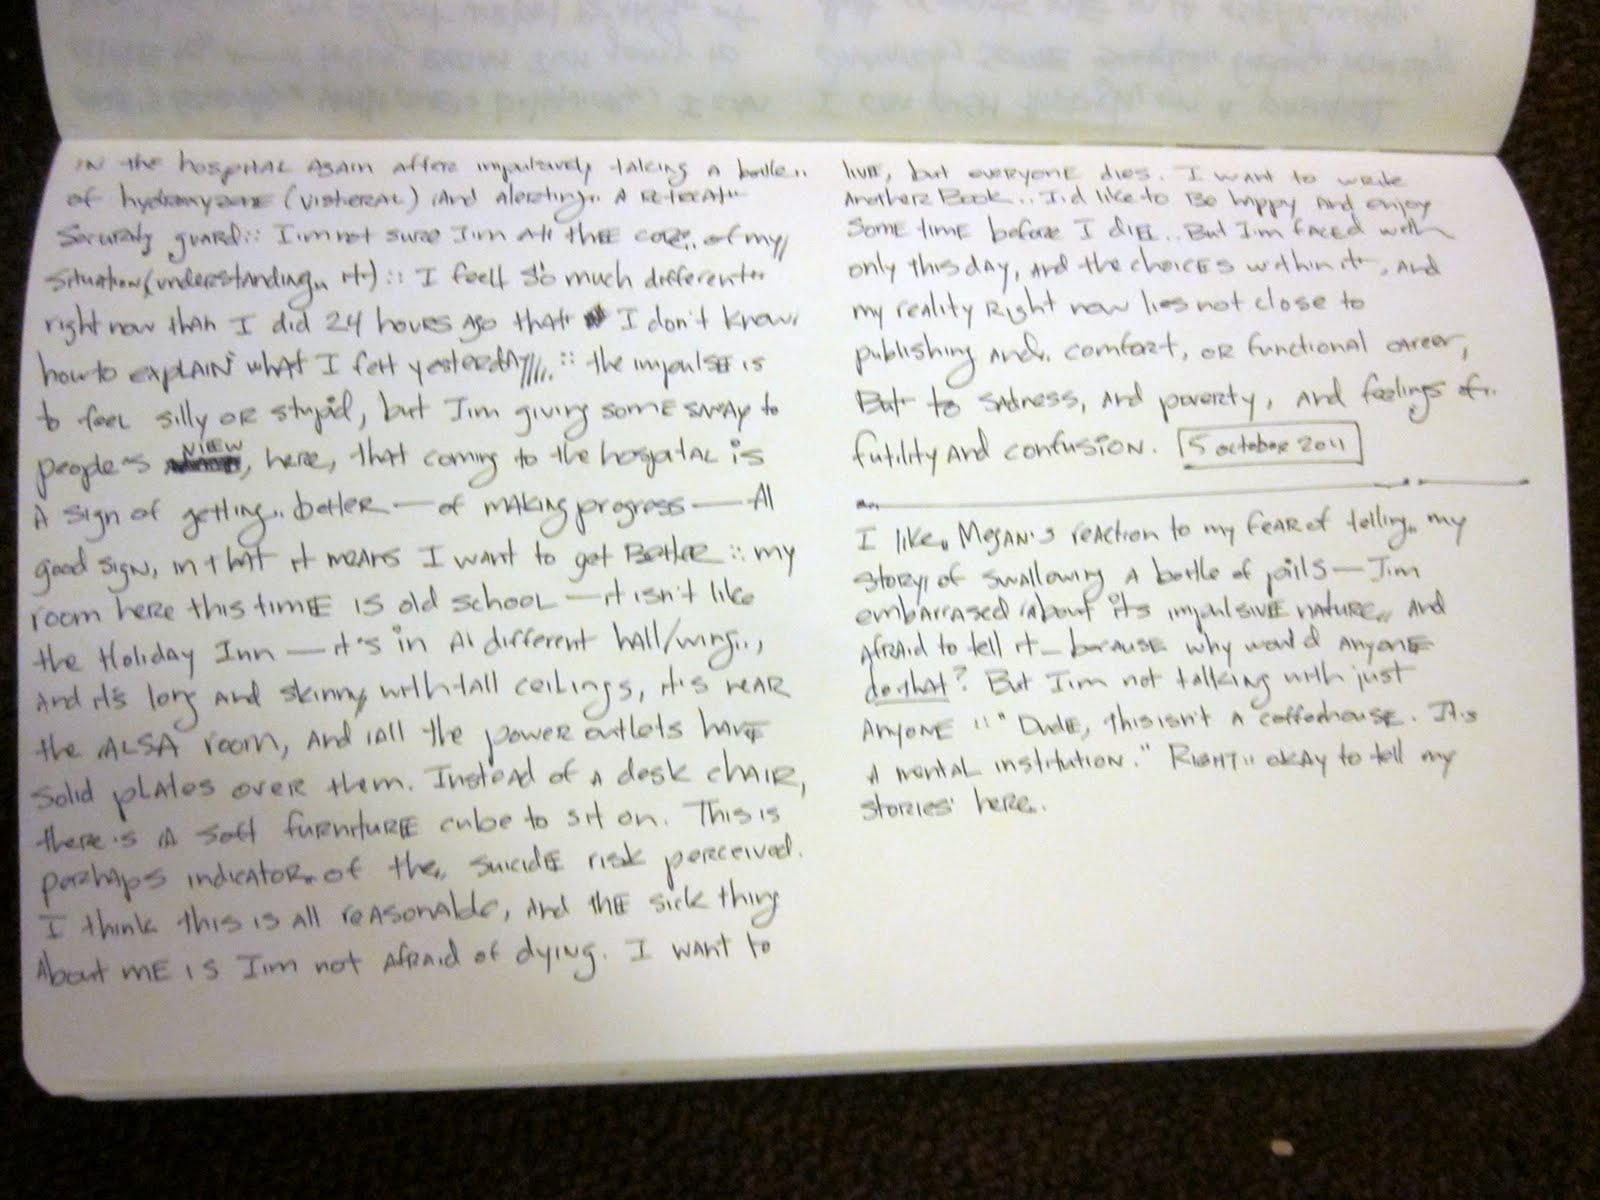 in the hospital again after impulsively taking a bottle..
of hydroxyzine (visteral) and alerting.. a
security guard:: I'm not sure I'm at the core.. of my
situation (understanding.. it) :: I feel so much different
right now than I did 24 hours ago that I don't know
how to explain what I felt yesterday :: the impulse is
to feel silly or stupid, but I'm giving some sway to
people's view, here, that coming to the hospital is
a sign of getting.. better — of making progress — A
good sign, in that it means I want to get better :: my
room here this time is old school — it isn't like
the Holiday Inn — it's in a different hall/wing..,
and it's long and skinny with tall ceilings, it's near
the ALSA room, and all the power outlets have
solid plates over them. Instead of a desk chair,
there's a soft furniture cube to sit on. This is
perhaps indicator. of the.. suicide risk perceived.
I think this is all reasonable, and the sick thing
about me is I'm not afraid of dying. I want to
live, but everyone dies. I want to write
another book.. I'd like to be happy and enjoy
some time before I die.. But I'm faced with
only this day, and the choices within it, and
my reality right now lies not close to
publishing and. comfort, or functional career,
But to sadness, and poverty, and feelings of..
futility and confusion. 5 october 2011
I like. Megan's reaction to my fear of telling.. my
story, of swallowing a bottle of pills — I'm
embarrased about its impulsive nature.. and
afraid to tell it — because why would anyone
do that? But I'm not talking with just
anyone :: "Dude, this isn't a coffeehouse. It's
a mental institution." Right :: okay to tell my
stories here..